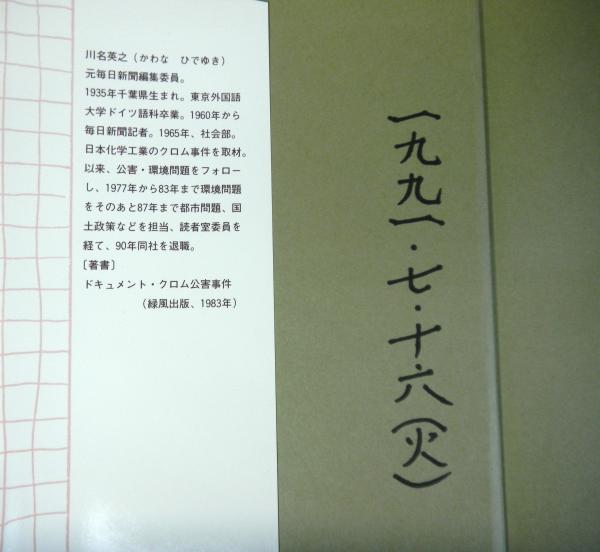 川名英之（かわな　ひでゆき）
元毎日新聞編集委員。
1935年千葉県生まれ。東京外国語
大学ドイツ語科卒業。1960年から
毎日新聞記者。1965年、社会部。
日本化学工業のクロム事件を取材。
以来、公害・環境問題をフォロー
し、1977年から83年まで環境問題
をそのあと87年まで都市問題、国
土政策などを担当、読者室委員を
経て、90年同社を退職。
〔著書〕
ドキュメント・クロム公害事件
（緑風出版、1983年）
一九九一・七・十六（火）